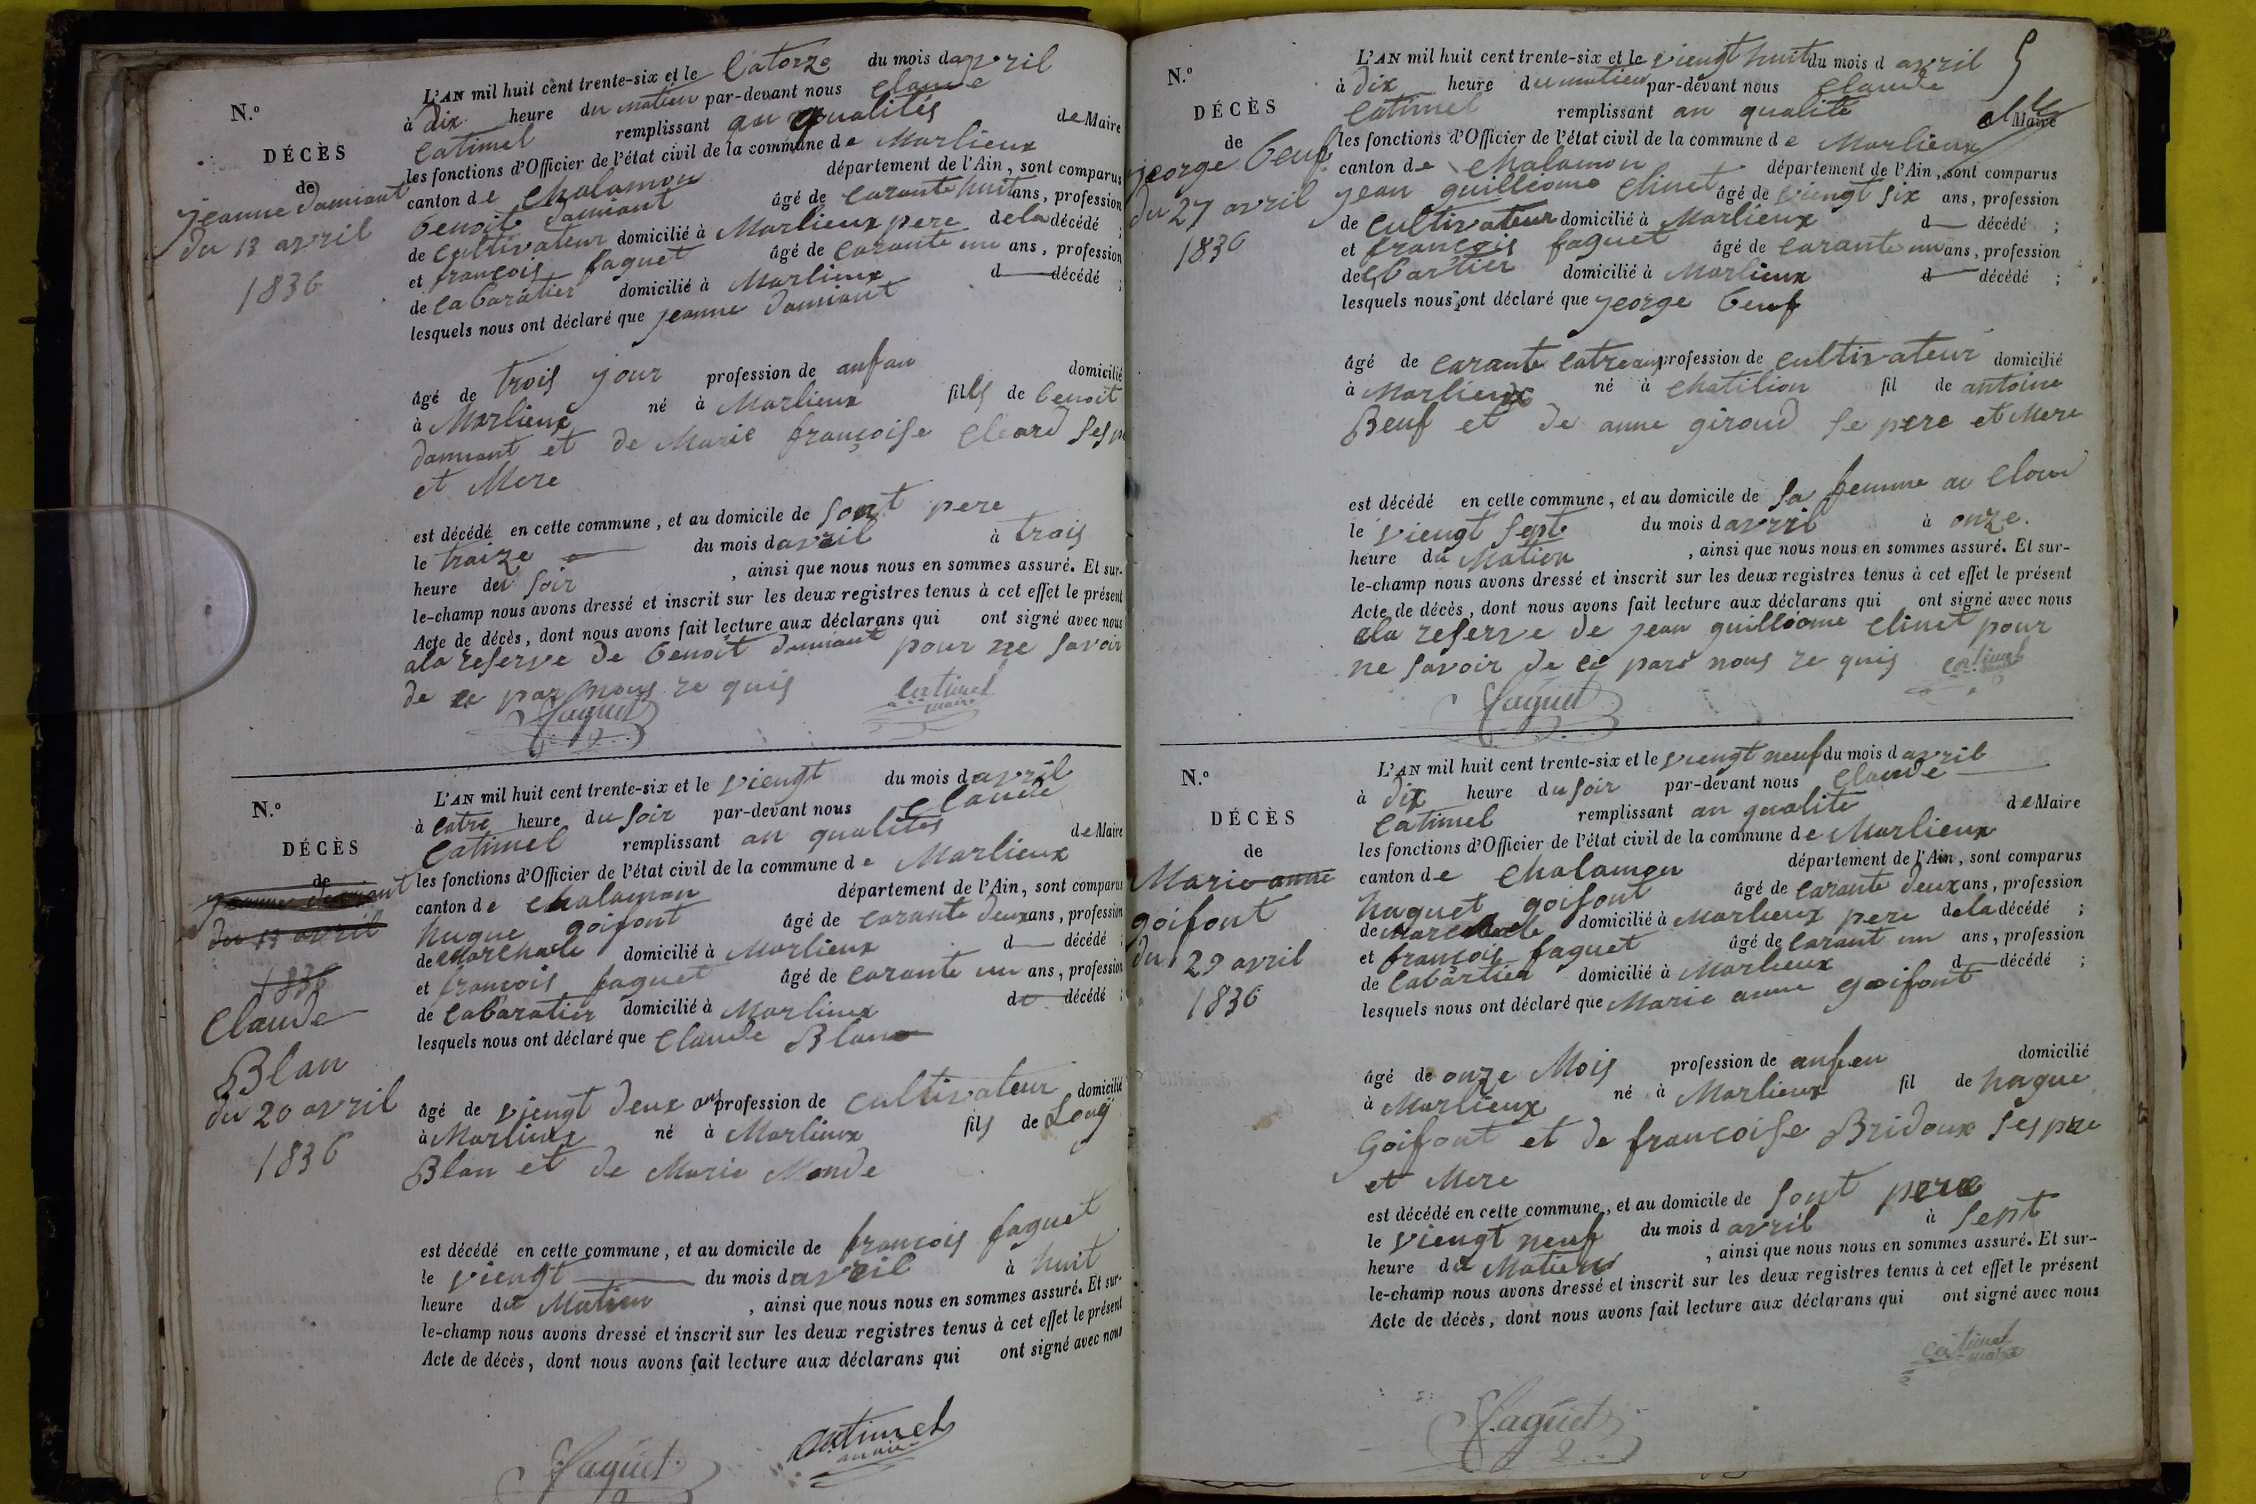 N.º
DÉCÈS
de
jeanne damiant
du 13 avril
1836
L'AN mil huit cent trente-six et le Catorze du mois davril
à dix heure du matien par-devant nous Claude
Catimel remplissant an qualités de Maire
les fonctions d'Officier de l'état civil de la commune de Marlieux
canton de Chalamon département de l'Ain, sont comparus
benoit damiant âgé de carante huit ans, profession
de cultivateur domicilié à Marlieux pere de la décédé ;
et françois faguet âgé de carante un ans, profession
de cabaratier domicilié à Marlieux d décédé ;
lesquels nous ont déclaré que jeanne damiant
âgé de trois jour profession de anfan domicilié
à Marlieux né à Marlieux fills de benoit
damiant et de Marie françoise Cleard ses p
et Mere
est décédé en cette commune, et au domicile de sont pere
le traize du mois davril à trois
heure deu soir , ainsi que nous nous en sommes assuré. Et sur-
le-champ nous avons dressé et inscrit sur les deux registres tenus à cet effet le présent
Acte de décès, dont nous avons fait lecture aux déclarans qui ont signé avec nous
ala reserve de benoit damiant pour ne savoir
de ce par nous re quis catimel
maire
faguet
N.º
DÉCÈS
de
jeanne damiant
du 13 avril
1836
Claude
Blan
du 20 avril
1836
L'AN mil huit cent trente-six et le viengt du mois davril
à catre heure du soir par-devant nous Claude
Catimel remplissant an qualités de Maire
les fonctions d'Officier de l'état civil de la commune de Marlieux
canton de Chalamon département de l'Ain, sont comparus
hugue goifont âgé de carante deux ans, profession
de marchale domicilié à Marlieux d décédé ;
et françois faguet âgé de carante un ans, profession
de cabaratier domicilié à Marlieux de décédé ;
lesquels nous ont déclaré que Claude Blan
âgé de viengt deux ans profession de cultivateur domicilié
à Marlieux né à Marlieux fils de Louy
Blan et de Marie Monde
est décédé en cette commune, et au domicile de françois faguet
le viengt du mois davril à huit
heure du Matien , ainsi que nous nous en sommes assuré. Et sur-
le-champ nous avons dressé et inscrit sur les deux registres tenus à cet effet le présent
Acte de décès, dont nous avons fait lecture aux déclarans qui ont signé avec nous
catimel
maire
faguet
5
N.º
DÉCÈS
de
jeorge beuf
du 27 avril
1836
L'AN mil huit cent trente-six et le viengt huit du mois d avril
à dix heure du matien par-devant nous Claude
Catimel remplissant an qualité de Maire
les fonctions d'Officier de l'état civil de la commune de Marlieux
canton de Chalamon département de l'Ain, sont comparus
jean guilleome Clinet âgé de viengt six ans, profession
de cultivateur domicilié à Marlieux d décédé ;
et françois faguet âgé de carante un ans, profession
de cbartier domicilié à Marlieux d décédé ;
lesquels nous ont déclaré que jeorge beuf
âgé de carante catre ans profession de cultivateur domicilié
à Marlieux né à chatilion fil de antoine
Beuf et de anne giroud se pere et Mere
est décédé en cette commune, et au domicile de sa femme au Clour
le viengt sept du mois d avril à onze.
heure du Matien , ainsi que nous nous en sommes assuré. Et sur-
le-champ nous avons dressé et inscrit sur les deux registres tenus à cet effet le présent
Acte de décès, dont nous avons fait lecture aux déclarans qui ont signé avec nous
ala reserve de jean guilleome Clinet pour
ne savoir de ce pare nous re quis catimel
faguet
N.º
DÉCÈS
de
Marie anne
goifont
du 29 avril
1836
L'AN mil huit cent trente-six et le viengt neuf du mois d avril
à dix heure du soir par-devant nous Claude
Catimel remplissant an qualité de Maire
les fonctions d'Officier de l'état civil de la commune de Marlieux
canton de Chalamon département de l'Ain, sont comparus
huguet goifont âgé de carante deux ans, profession
de marchale domicilié à Marlieux pere de la décédé ;
et françois faguet âgé de carant un ans, profession
de cabartier domicilié à Marlieux d décédé ;
lesquels nous ont déclaré que Marie anne goifont
âgé de onze Mois profession de anfen domicilié
à Marlieux né à Marlieux fil de hugue
Goifont et de francoise Bridoux ses pere
et Mere
est décédé en cette commune, et au domicile de sont pere
le viengt neuf du mois d avril à sept
heure du Matien , ainsi que nous nous en sommes assuré. Et sur-
le-champ nous avons dressé et inscrit sur les deux registres tenus à cet effet le présent
Acte de décès, dont nous avons fait lecture aux déclarans qui ont signé avec nous
catimel
maire
faguet